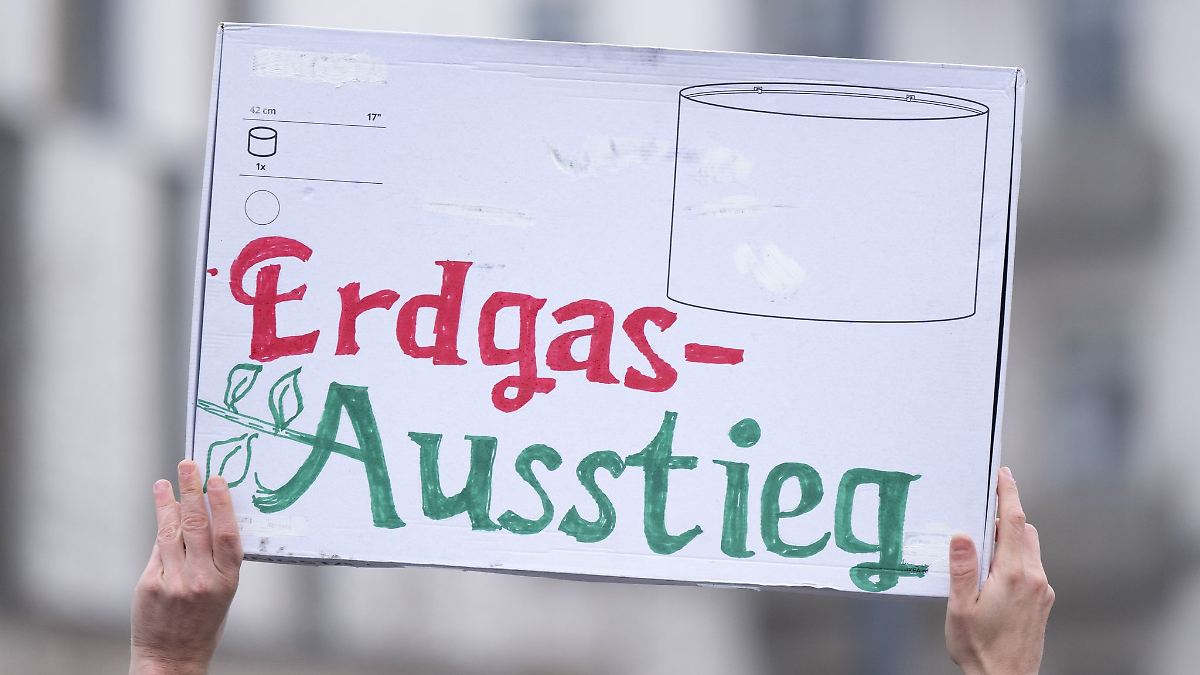 42 cm
17"
1x
Erdgas-
Ausstieg